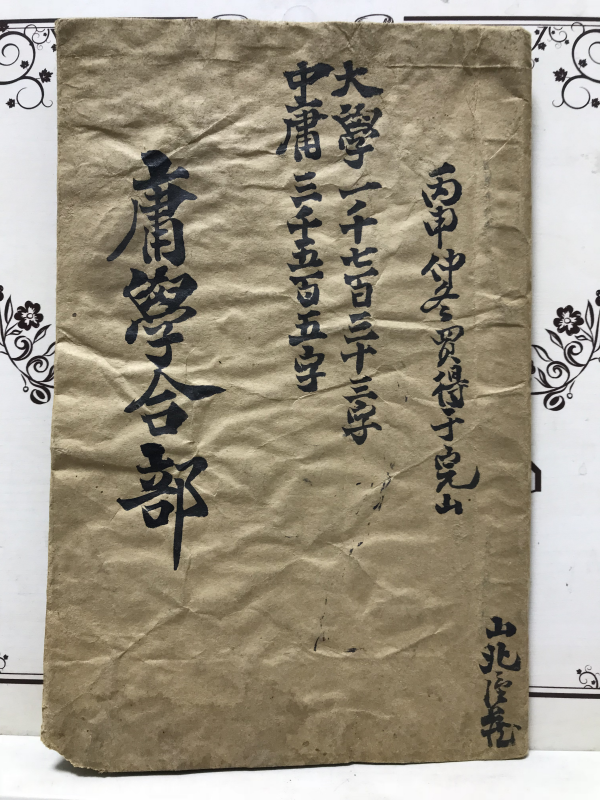 丙申仲冬買得于完山
大學 一千七百三十三字
中庸 三千五百五字
庸學合部
山北 藏